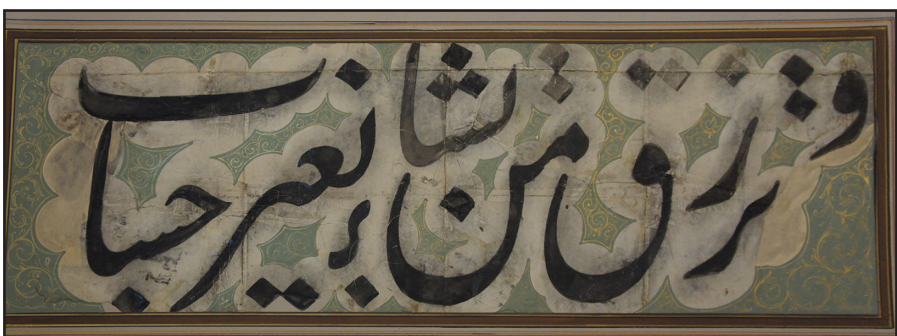 و ترزق من تشاء بغیر حساب